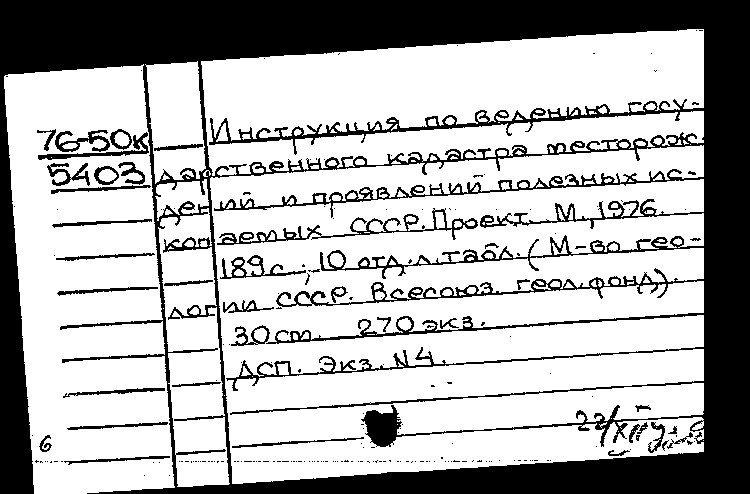 76-50к
5403
Инструкция по ведению госу-
дарственного кадастра месторож-
дений и проявлений полезных ис-
копаемых СССР. Проект. М., 1976.
189с.; 10 отд.л.табл. (М-во гео-
логии СССР. Всесоюз. геол. фонд).
30см. 270 экз.
ДСП. Экз. N4.
22/XII
6